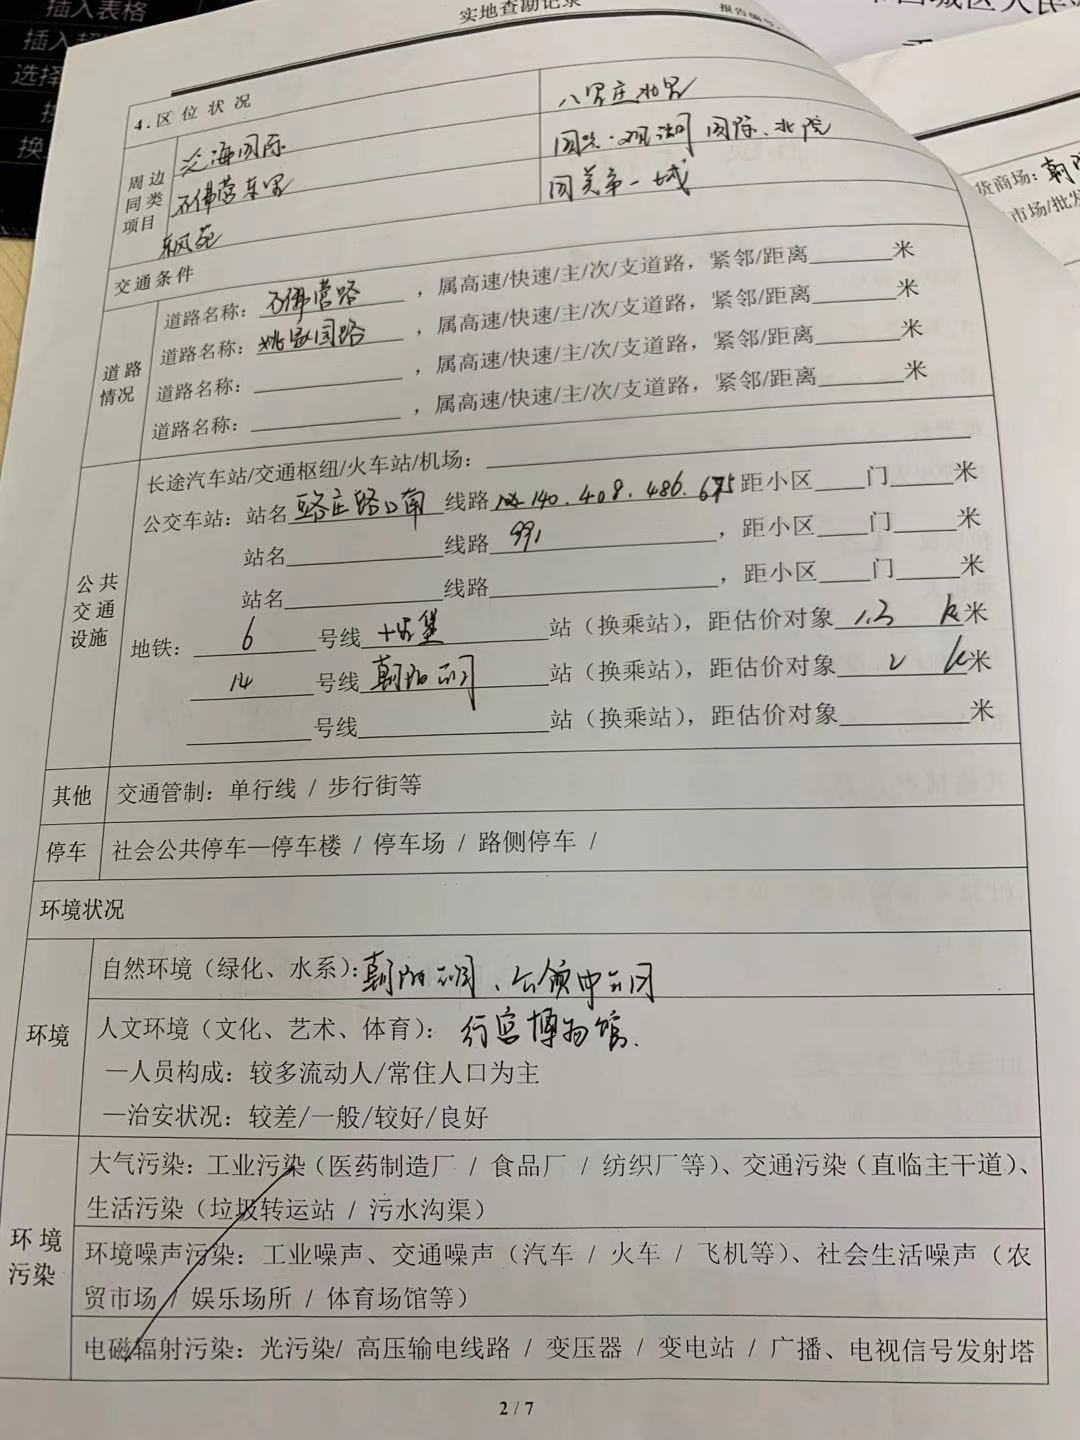 插入表格
选择
实地查勘记录
报告编号
4.区位状况
周边同类项目
泛海国际
八里庄北里
石佛营东里
国兴·观湖国际、北院
东风苑
国美第一城
交通条件
道路情况
道路名称：石佛营路，属高速/快速/主/次/支道路，紧邻/距离____米
道路名称：姚家园路，属高速/快速/主/次/支道路，紧邻/距离____米
道路名称：____，属高速/快速/主/次/支道路，紧邻/距离____米
道路名称：____，属高速/快速/主/次/支道路，紧邻/距离____米
公共交通设施
长途汽车站/交通枢纽/火车站/机场：____
公交车站：站名 路庄路口南 线路 140.408.486.675 距小区____门____米
站名____线路 991，距小区____门____米
站名____线路____，距小区____门____米
地铁： 6 号线 十里堡 站（换乘站），距估价对象 1.3 k米
14 号线 朝阳公园 站（换乘站），距估价对象 2 k米
____号线____站（换乘站），距估价对象____米
其他 交通管制：单行线 / 步行街等
停车 社会公共停车—停车楼 / 停车场 / 路侧停车 /
环境状况
环境
自然环境（绿化、水系）：朝阳公园、
人文环境（文化、艺术、体育）：行宫博物馆.
—人员构成：较多流动人/常住人口为主
—治安状况：较差/一般/较好/良好
环境污染
大气污染：工业污染（医药制造厂 / 食品厂 / 纺织厂等）、交通污染（直临主干道）、
生活污染（垃圾转运站 / 污水沟渠）
环境噪声污染：工业噪声、交通噪声（汽车 / 火车 / 飞机等）、社会生活噪声（农
贸市场 / 娱乐场所 / 体育场馆等）
电磁辐射污染：光污染/ 高压输电线路 / 变压器 / 变电站 / 广播、电视信号发射塔
2 / 7
货商场：朝阳
市场/批发